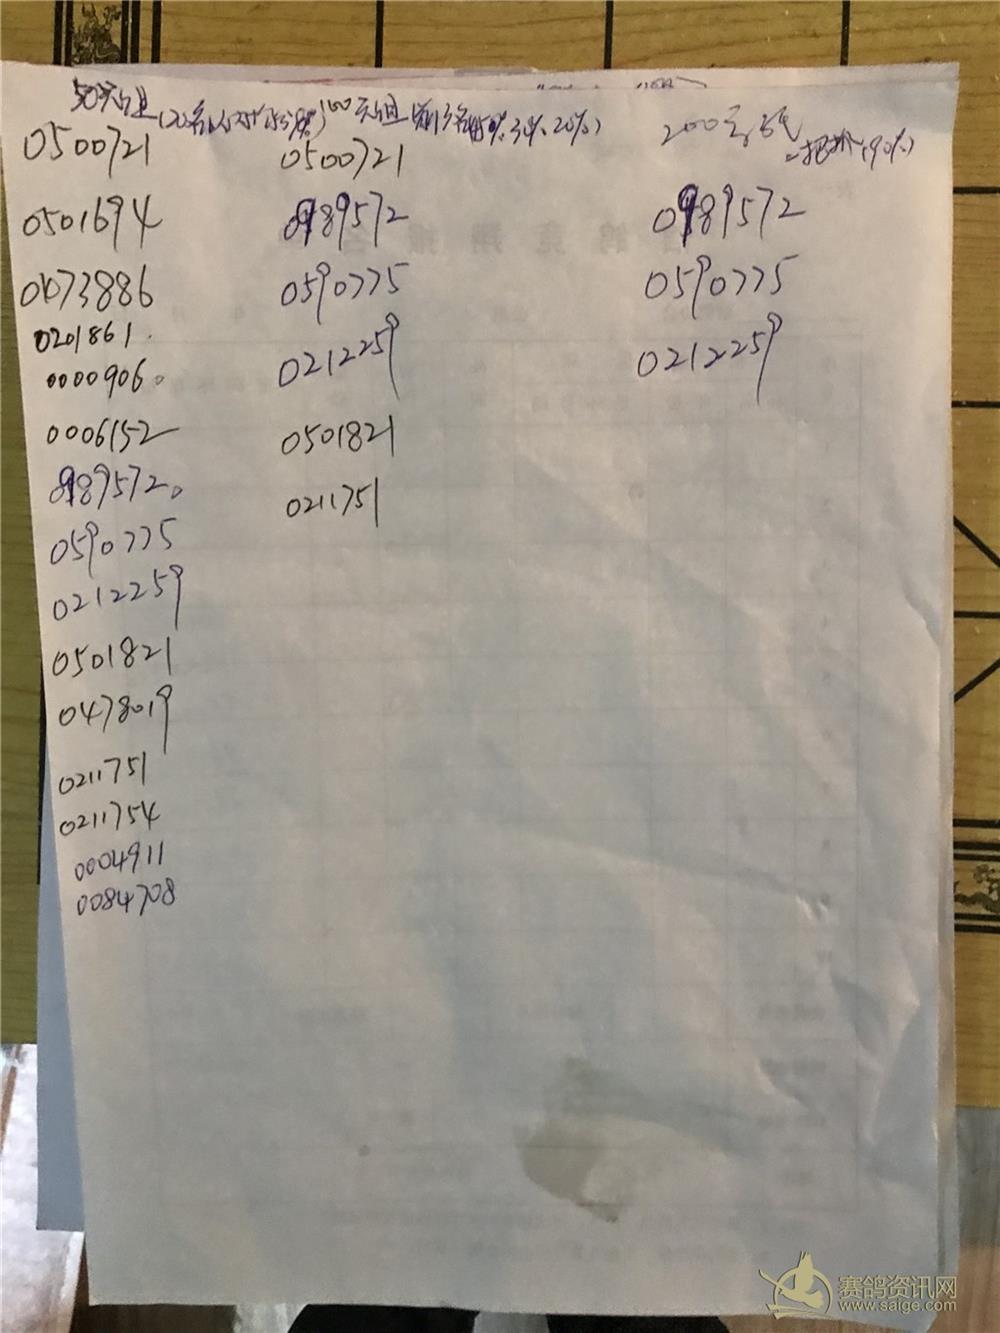 50元组
100元组 50% 30% 20%)
200元
(90%)
0500721
0501694
0073886
0201861
0000906
0006152
0989572
0590775
0212259
0501821
0478019
0211751
0211754
0004911
0084708
0500721
0989572
0590775
0212259
0501821
0211751
0989572
0590775
0212259
赛鸽资讯网
www.saige.com